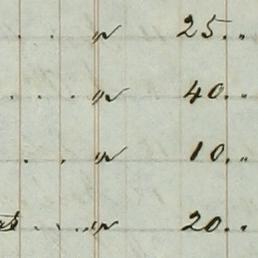 " 25. "
" 40. "
" 10. "
" 20. "